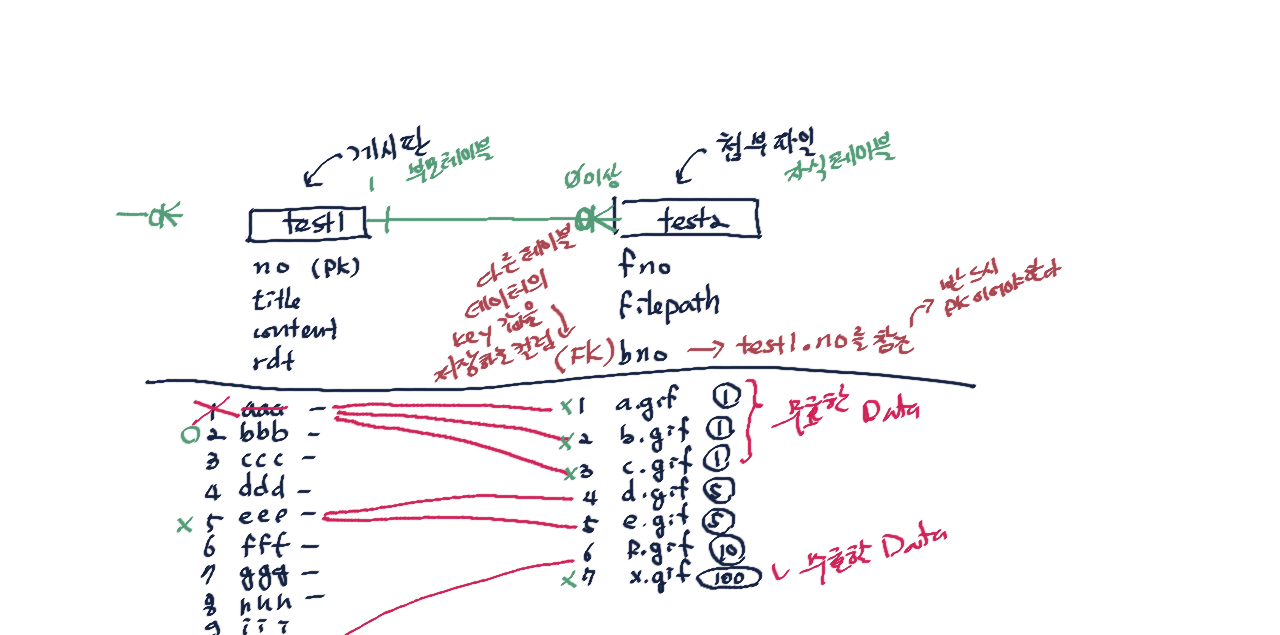 게시판
부모테이블
1
0이상
첨부파일
자식테이블
test1
test2
no (PK)
title
content
rdt
다른테이블
데이터의
key 값을
저장하는 컬럼
fno
filepath
(FK) bno → test1.no를 참조
반드시
PK이어야한다
1 aaa -
2 bbb -
3 ccc -
4 ddd -
5 eee -
6 fff -
7 ggg -
8 hhh -
9 iii
x 1 a.gif 1
x 2 b.gif 1
x 3 c.gif 1
4 d.gif 5
5 e.gif 5
6 f.gif 10
x 7 x.gif 100
무결한 Data
무결한 Data